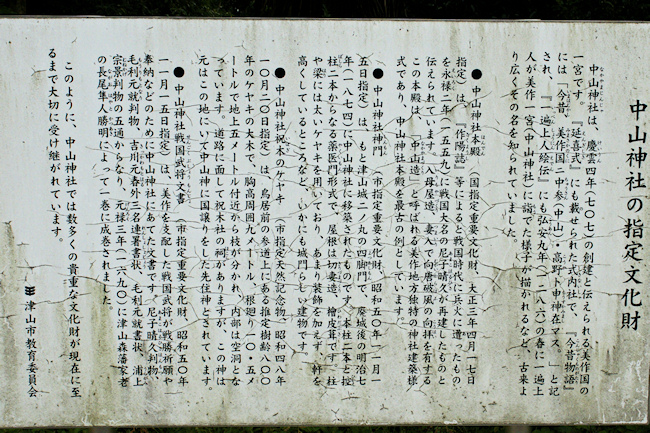 中山神社の指定文化財
中山神社は、慶雲四年（七〇七）の創建と伝えられる美作国の
一宮です。『延喜式』にも載せられた式内社で、『今昔物語』
には「今昔、美作国ニ中参（中山）・高野ト申神在マス。」と記
され、『一遍上人絵伝』にも弘安九年（一二八六）の春に一遍上
人が美作一宮（中山神社）に詣でた様子が描かれるなど、古来よ
り広くその名を知られていました。
●中山神社本殿（国指定重要文化財、大正三年四月一七日
指定）は、『作陽誌』等によると戦国時代に兵火に遭ったもの
を永禄二年（一五五九）に戦国大名の尼子晴久が再建したものと
伝えられています。入母屋造、妻入で向唐破風の向拝を有する
この本殿は、「中山造」と呼ばれる美作地方独特の神社建築様
式であり、中山神社本殿を最古の例としています。
●中山神社神門（市指定重要文化財、昭和五〇年一一月一
五日指定）は、もと津山城二ノ丸の四脚門で、廃城後の明治七
年（一八七四）に中山神社に移築されたものです。本柱二本と控
柱二本からなる薬医門形式で、屋根は切妻造、檜皮茸です。柱
や梁には太いケヤキを用いており、あまり装飾を加えず、軒を
高くしているところなど、いかにも城門らしい建物です。
●中山神社祝木のケヤキ（市指定天然記念物、昭和四八年
一〇月二〇日指定）は、鳥居前の参道上にある推定樹齢八〇〇
年のケヤキの大木で、胸高周囲九メートル、根廻り一〇・五メ
ートルで地上五メートル付近から枝が分かれ、内部は空洞とな
っています。道路に面して祝木社の祠がありますが、この神は
元はこの地にいて中山神に国譲りをした先住神とされています。
●中山神社戦国武将文書（市指定重要文化財、昭和五〇年
一一月一五日指定）は、美作を支配した戦国武将が戦勝祈願や
奉納などのために中山神社にあてた文書です。尼子晴久判物、
毛利元就判物、吉川元春外三名連署書状、毛利元就書状、浦上
宗景判物の五通からなり、元禄三年（一六九〇）に津山森藩家老
の長尾隼人勝明によって一巻に成巻されました。
このように、中山神社では数多くの貴重な文化財が現在に至
るまで大切に受け継がれています。
津山市教育委員会